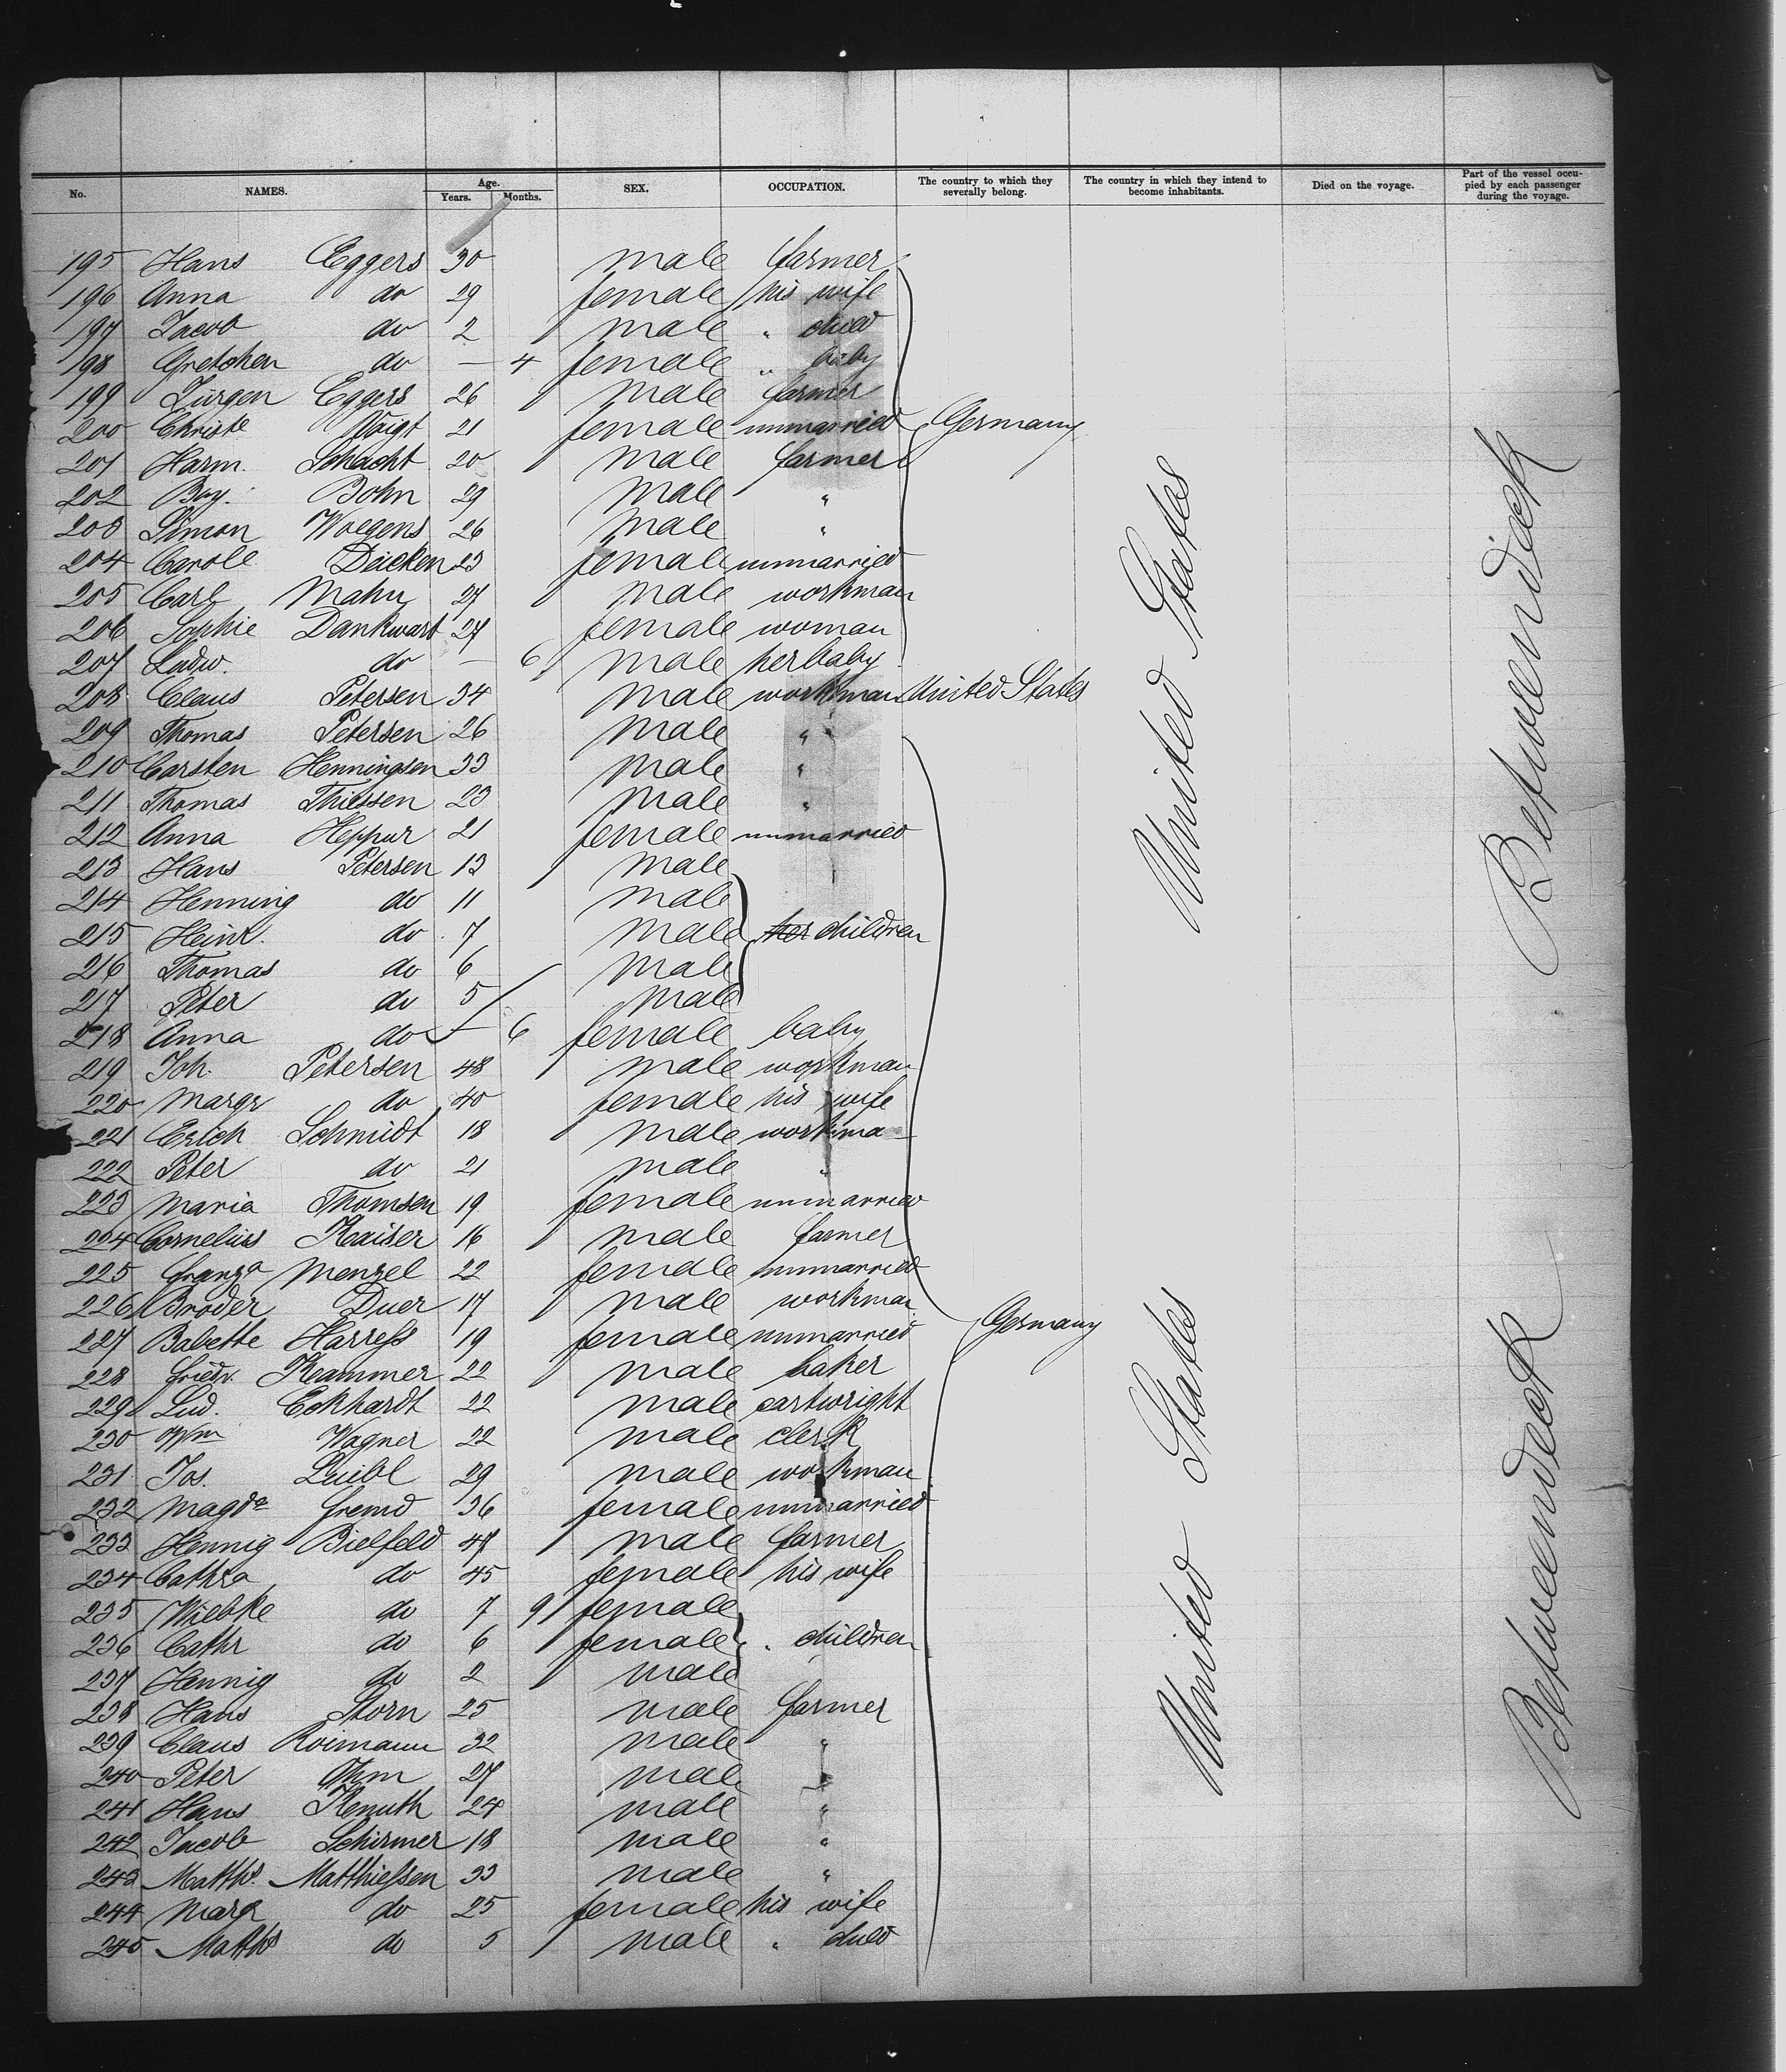 No. NAMES. Age. Years. Months. SEX. OCCUPATION. The country to which they severally belong. The country in which they intend to become inhabitants. Died on the voyage. Part of the vessel occupied by each passenger during the voyage.
195 Hans Eggers 30 male farmer
196 Anna do 29 female his wife
197 Jacob do 2 male " child
198 Gretchen do — 4 female " baby
199 Jürgen Eggers 26 male farmer
200 Christe Voigt 21 female unmarried Germany
201 Harm. Schacht 20 male farmer
202 Bay. Bohn 29 male "
203 Simon Woegens 26 male "
204 Carole Dücken 23 female unmarried
205 Carl Mahn 27 male workman
206 Sophie Dankwart 27 female woman
207 Ludw. do — 6 male her baby
208 Claus Petersen 34 male workman United States
209 Thomas Petersen 26 male "
210 Carsten Henningsen 33 male "
211 Thomas Thiessen 23 male "
212 Anna Heppur 21 female unmarried
213 Hans Petersen 13 male
214 Henning do 11 male
215 Heinr. do 7 male her children
216 Thomas do 6 male
217 Peter do 5 male
218 Anna do — 6 female baby
219 Joh. Petersen 48 male workman
220 Margr do 40 female his wife
221 Erich Schmidt 18 male workma
222 Peter do 21 male "
223 Maria Thomsen 19 female unmarried
224 Cornelius Kaiser 16 male farmer
225 Franza Menzel 22 female unmarried
226 Broder Duer 17 male workman
Germany
227 Babette Harress 19 female unmarried
228 Friedr. Kammer 22 male baker
229 Lud. Eckhardt 22 male cartwright
230 Wm Wagner 22 male clerk
231 Jos. Luibl 29 male workman
232 Magda Fremd 36 female unmarried
233 Hennig Bielfeld 47 male farmer
234 Cathra do 45 female his wife
235 Wiebke do 7 9 female
236 Cathr do 6 female " children
237 Hennig do 2 male
238 Hans Storn 25 male farmer
239 Claus Roimann 32 male "
240 Peter Ohm 27 male "
241 Hans Kemuth 24 male "
242 Jacob Schirmer 18 male "
243 Matths. Matthiessen 33 male "
244 Marg do 25 female his wife
245 Matths do 5 male " child
United States
United States
Betweendeck
Betweendeck